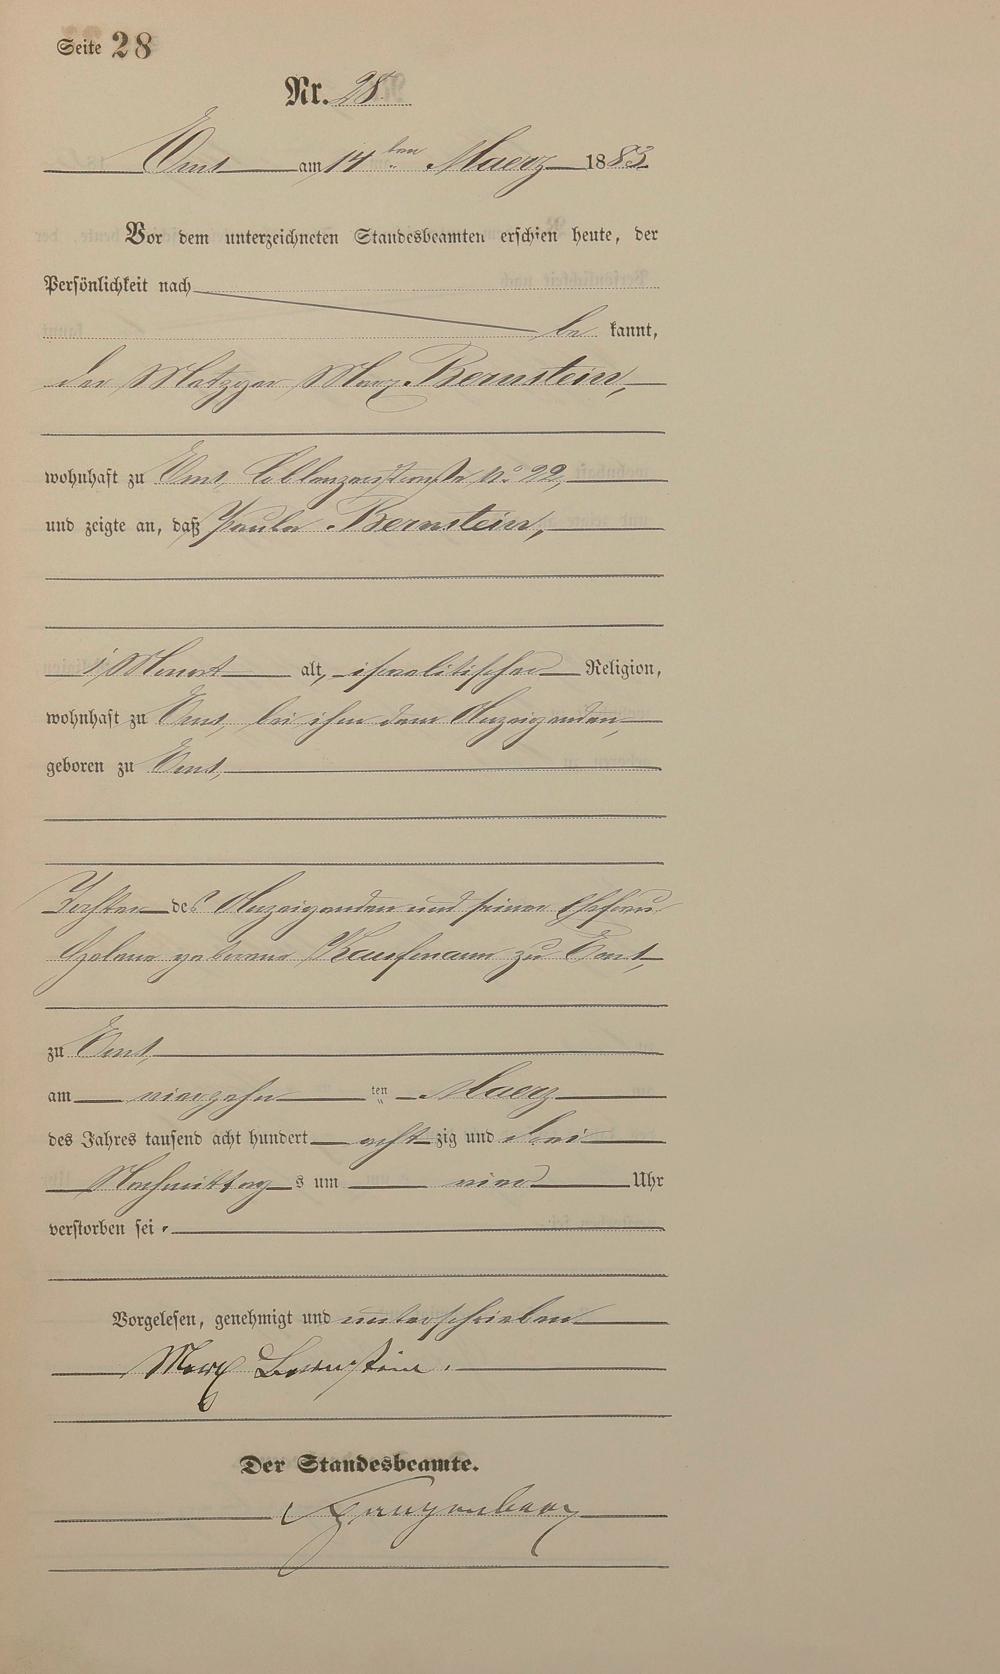 Seite 28
Nr. 28
Ems am 14ten Maerz 1883
Vor dem unterzeichneten Standesbeamten erschien heute, der
Persönlichkeit nach
be kannt,
der Metzger Marx Bernstein,
wohnhaft zu Ems, Coblenzerstraße No. 22,
und zeigte an, daß Paula Bernstein,
1 Monat alt, israelitischer Religion,
wohnhaft zu Ems, bei ihm dem Anzeigenden,
geboren zu Ems,
Tochter des Anzeigenden und seiner Ehefrau
Helene geborene Kaufmann zu Ems,
zu Ems,
am vierzehn ten Maerz
des Jahres tausend acht hundert acht zig und drei
Nachmittag s um vier Uhr
verstorben sei.
Vorgelesen, genehmigt und unterschrieben
Marx Bernstein.
Der Standesbeamte.